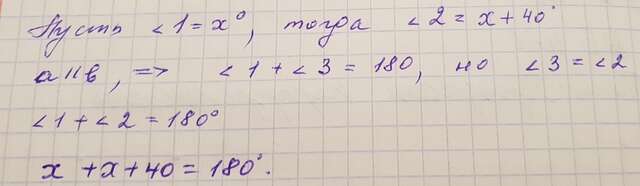 Пусть < 1 = x°, тогда < 2 = x + 40°
a || в, => < 1 + < 3 = 180, но < 3 = < 2
< 1 + < 2 = 180°
x + x + 40 = 180°.